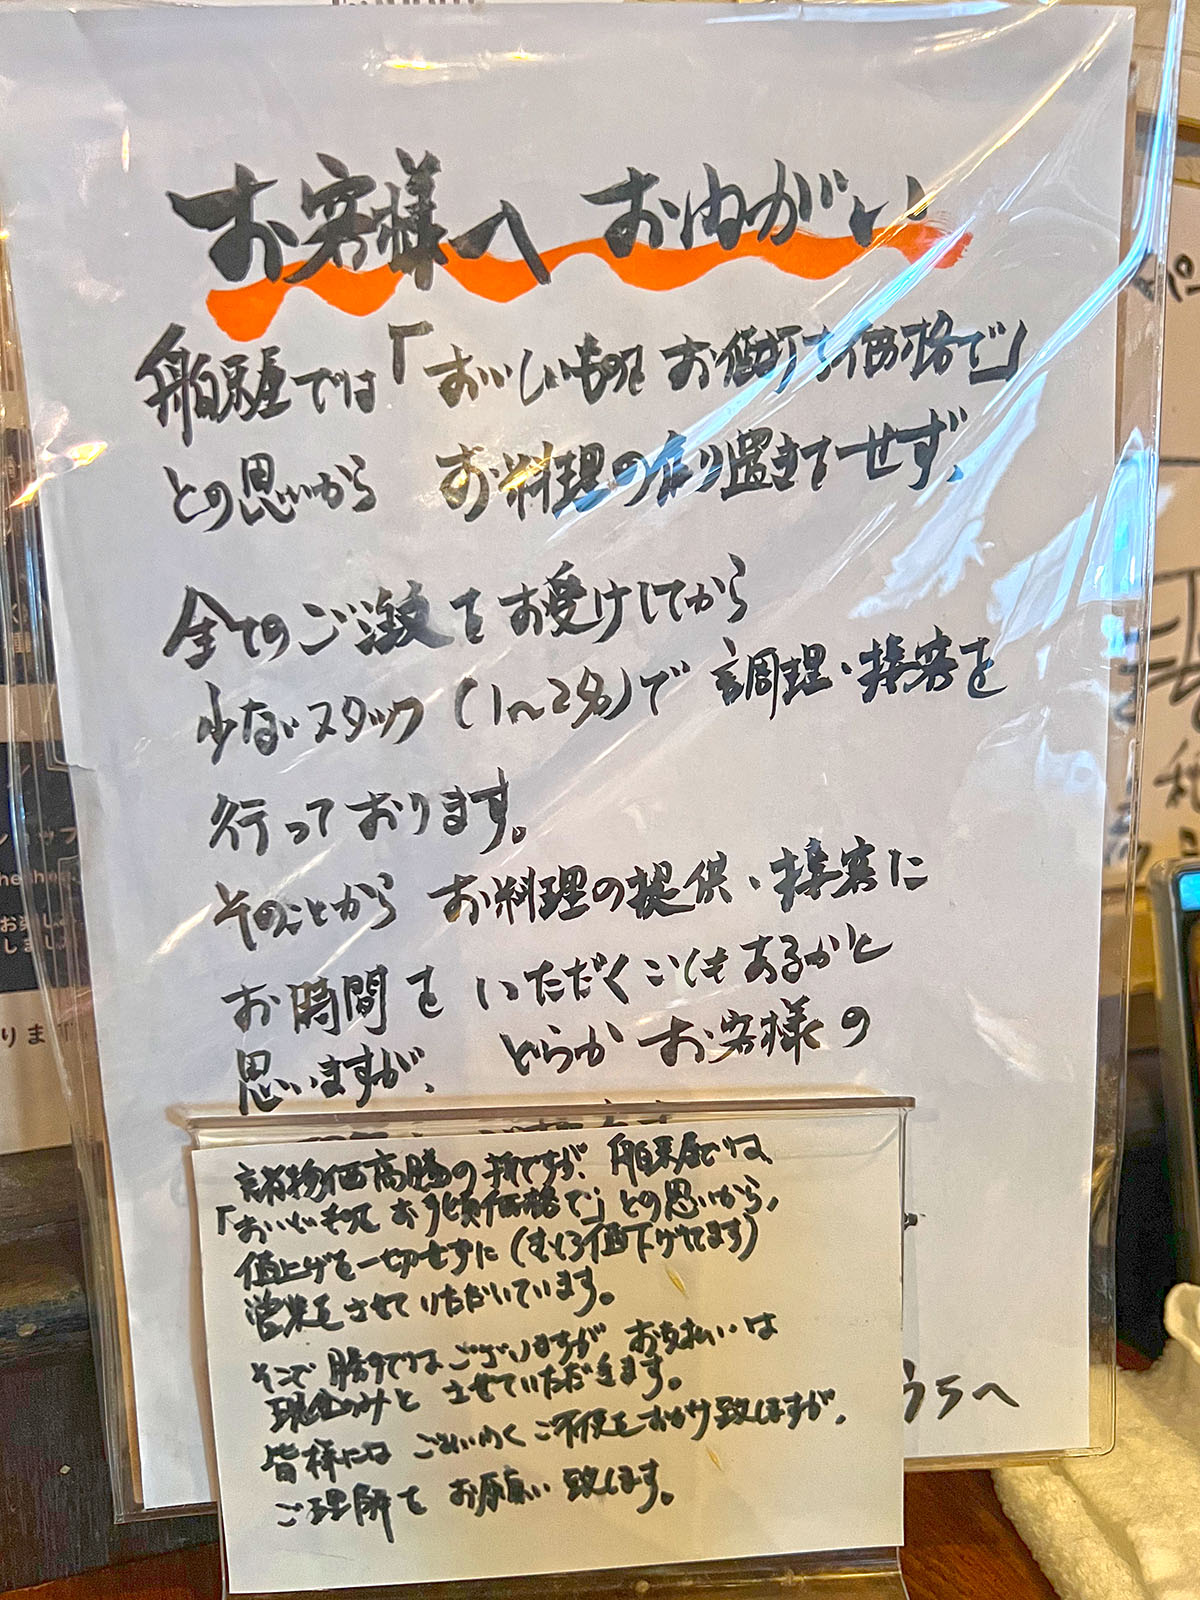 お客様へ おねがい
舶来屋では「おいしいものを お値打ち価格で」
との思いから お料理の作り置きてせず、
全てのご注文をお受けしてから
少ないスタッフ(1〜2名)で 調理・接客を
行っております。
そのことから お料理の提供・接客に
お時間を いただくこくもあるかと
思いますが、 どうか お客様の
諸物価高騰の折ですが、舶来屋では、
「おいしいものを お値頃価格で」との思いから、
値上げを一切せずに(むしろ値下げてます)
営業をさせていただいています。
そこで 勝手ではございますが お支払いは
現金のみと させていただきます。
皆様には ごめいわく ご不便をおかけ致しますが、
ご理解を お願い致します。
うちへ
ョップ
お楽しみ
しまし
ります